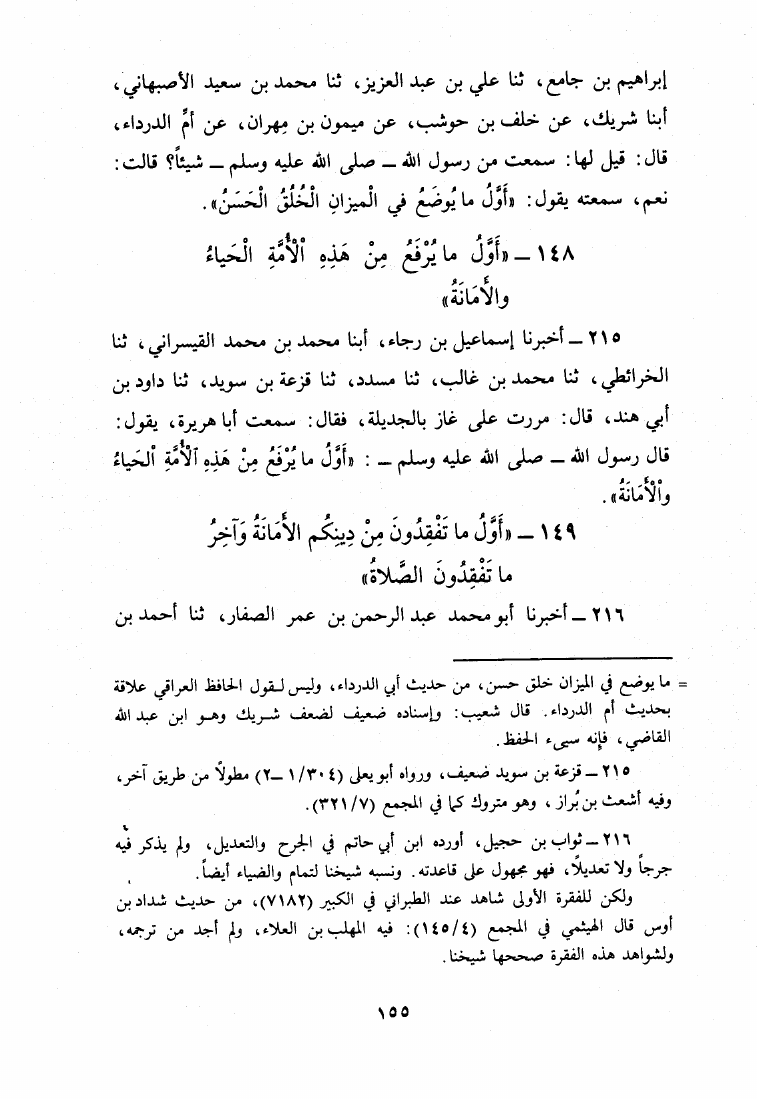 إبراهيم بن جامع، ثنا علي بن عبد العزيز، ثنا محمد بن سعيد الأصبهاني،
أبنا شريك، عن خلف بن حوشب، عن ميمون بن مِهران، عن أمِّ الدرداء،
قال: قيل لها: سمعت من رسول الله ــ صلى الله عليه وسلم ــ شيئاً؟ قالت:
نعم، سمعته يقول: «أَوَّلُ ما يُوضَعُ في الْميزانِ الْخُلُقُ الْحَسَنُ».
١٤٨ ــ «أَوَّلُ ما يُرْفَعُ مِنْ هَذِهِ ٱلْأُمَّةِ الْحَياءُ
والأَمَانَةُ»
٢١٥ ــ أخبرنا إسماعيل بن رجاء، أبنا محمد بن محمد القيسراني، ثنا
الخرائطي، ثنا محمد بن غالب، ثنا مسدد، ثنا قزعة بن سويد، ثنا داود بن
أبي هند، قال: مررت على غاز بالجديلة، فقال: سمعت أبا هريرة، يقول:
قال رسول الله ــ صلى الله عليه وسلم ــ : «أَوَّلُ ما يُرْفَعُ مِنْ هَذِهِ ٱلْأُمَّةِ ٱلْحَياءُ
وٱلْأَمَانَةُ».
١٤٩ ــ «أَوَّلُ ما تَفْقِدُونَ مِنْ دِينِكُم الأَمَانَةُ وَآخِرُ
ما تَفْقِدُونَ الصَّلاةُ»
٢١٦ ــ أخبرنا أبو محمد عبد الرحمن بن عمر الصفار، ثنا أحمد بن
= ما يوضع في الميزان خلق حسن، من حديث أبي الدرداء، وليس لقول الحافظ العراقي علاقة
بحديث أم الدرداء. قال شعيب: وإسناده ضعيف لضعف شريك وهو ابن عبد الله
القاضي، فإنه سيىء الحفظ.
٢١٥ ــ قزعة بن سويد ضعيف، ورواه أبو يعلى (٣٠٤/ ١ــ٢) مطولاً من طريق آخر،
وفيه أشعث بن بُراز، وهو متروك كما في المجمع (٣٢١/٧).
٢١٦ ــ ثواب بن حجيل، أورده ابن أبي حاتم في الجرح والتعديل، ولم يذكر فيه
جرحاً ولا تعديلاً، فهو مجهول على قاعدته. ونسبه شيخنا لتمام والضياء أيضاً.
ولكن للفقرة الأولى شاهد عند الطبراني في الكبير (٧١٨٢)، من حديث شداد بن
أوس قال الهيثمي في المجمع (١٤٥/٤): فيه المهلب بن العلاء، ولم أجد من ترجمه،
ولشواهد هذه الفقرة صححها شيخنا.
١٥٥